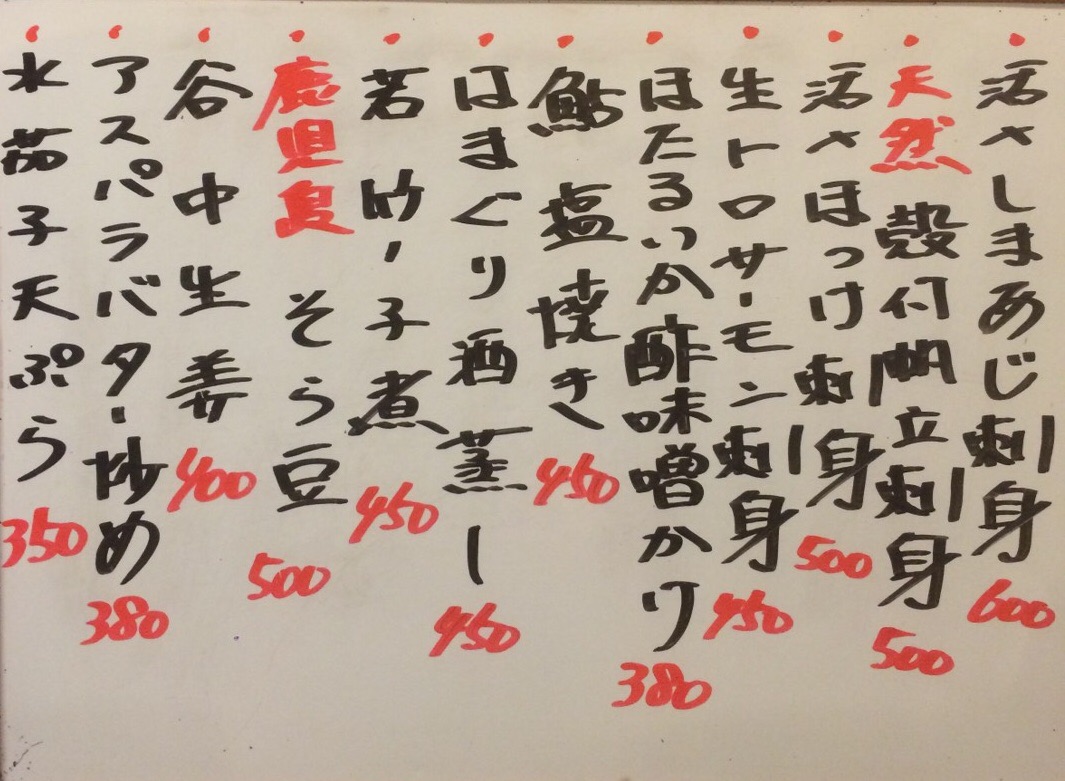 ・活〆しまあじ刺身 600
・天然 殻付帆立刺身 500
・活〆ほっけ刺身 500
・生トロサーモン刺身 450
・ほたるいか酢味噌かけ 380
・鮎塩焼き 450
・はまぐり酒蒸し 450
・若竹ノ子煮 450
・鹿児島 そら豆 500
・谷中生姜 400
・アスパラバター炒め 380
・水茄子天ぷら 350